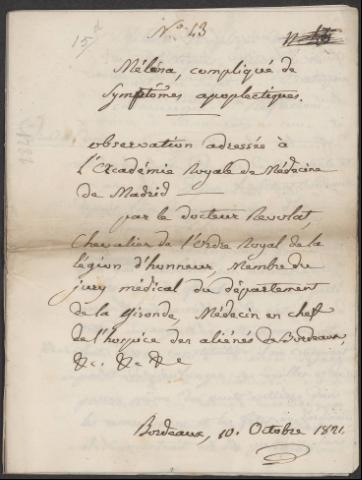 15/d
Nº 43
Méléna, compliqué de
Symptômes apoplectiques.
observation adressée à
l'Académie Royale de Médecine
de Madrid
par le docteur Revolat,
Chevalier de l'Ordre Royal de la
légion d'honneur, Membre du
jury médical du département
de la Gironde, Médecin en chef
de l'hospice des aliénés de Bordeaux,
&c. &c &c
Bordeaux, 10. Octobre 1821.